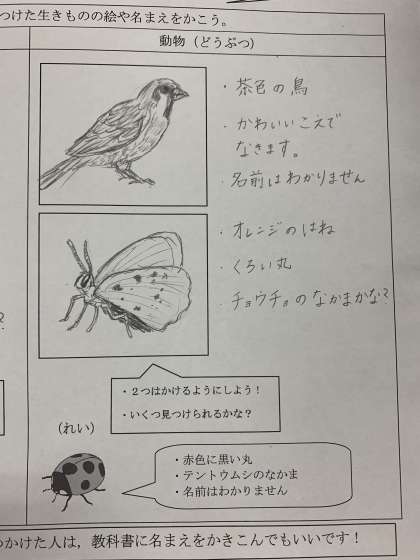 つけた生きものの絵や名まえをかこう。
動物（どうぶつ）
・茶色の鳥
・かわいいこえで
なきます。
・名前はわかりません
・オレンジのはね
・くろい丸
・チョウチョのなかまかな?
・２つはかけるようにしよう！
・いくつ見つけられるかな？
（れい）
・赤色に黒い丸
・テントウムシのなかま
・名前はわかりません
つかけた人は，教科書に名まえをかきこんでもいいです！